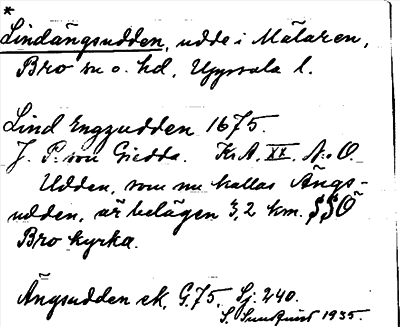 *
Lindängsudden, udde i Mälaren,
Bro sn o. hd, Uppsala l.
Lind Engzudden 1675.
J. P. von Giedda. KrA, XX, N:o 0.
Udden, som nu kallas Ängs-
udden, är belägen 3,2 km. SSÖ
Bro kyrka.
Ängsudden ek. G. 75, Sj. 240.
S. Sundquist 1935.